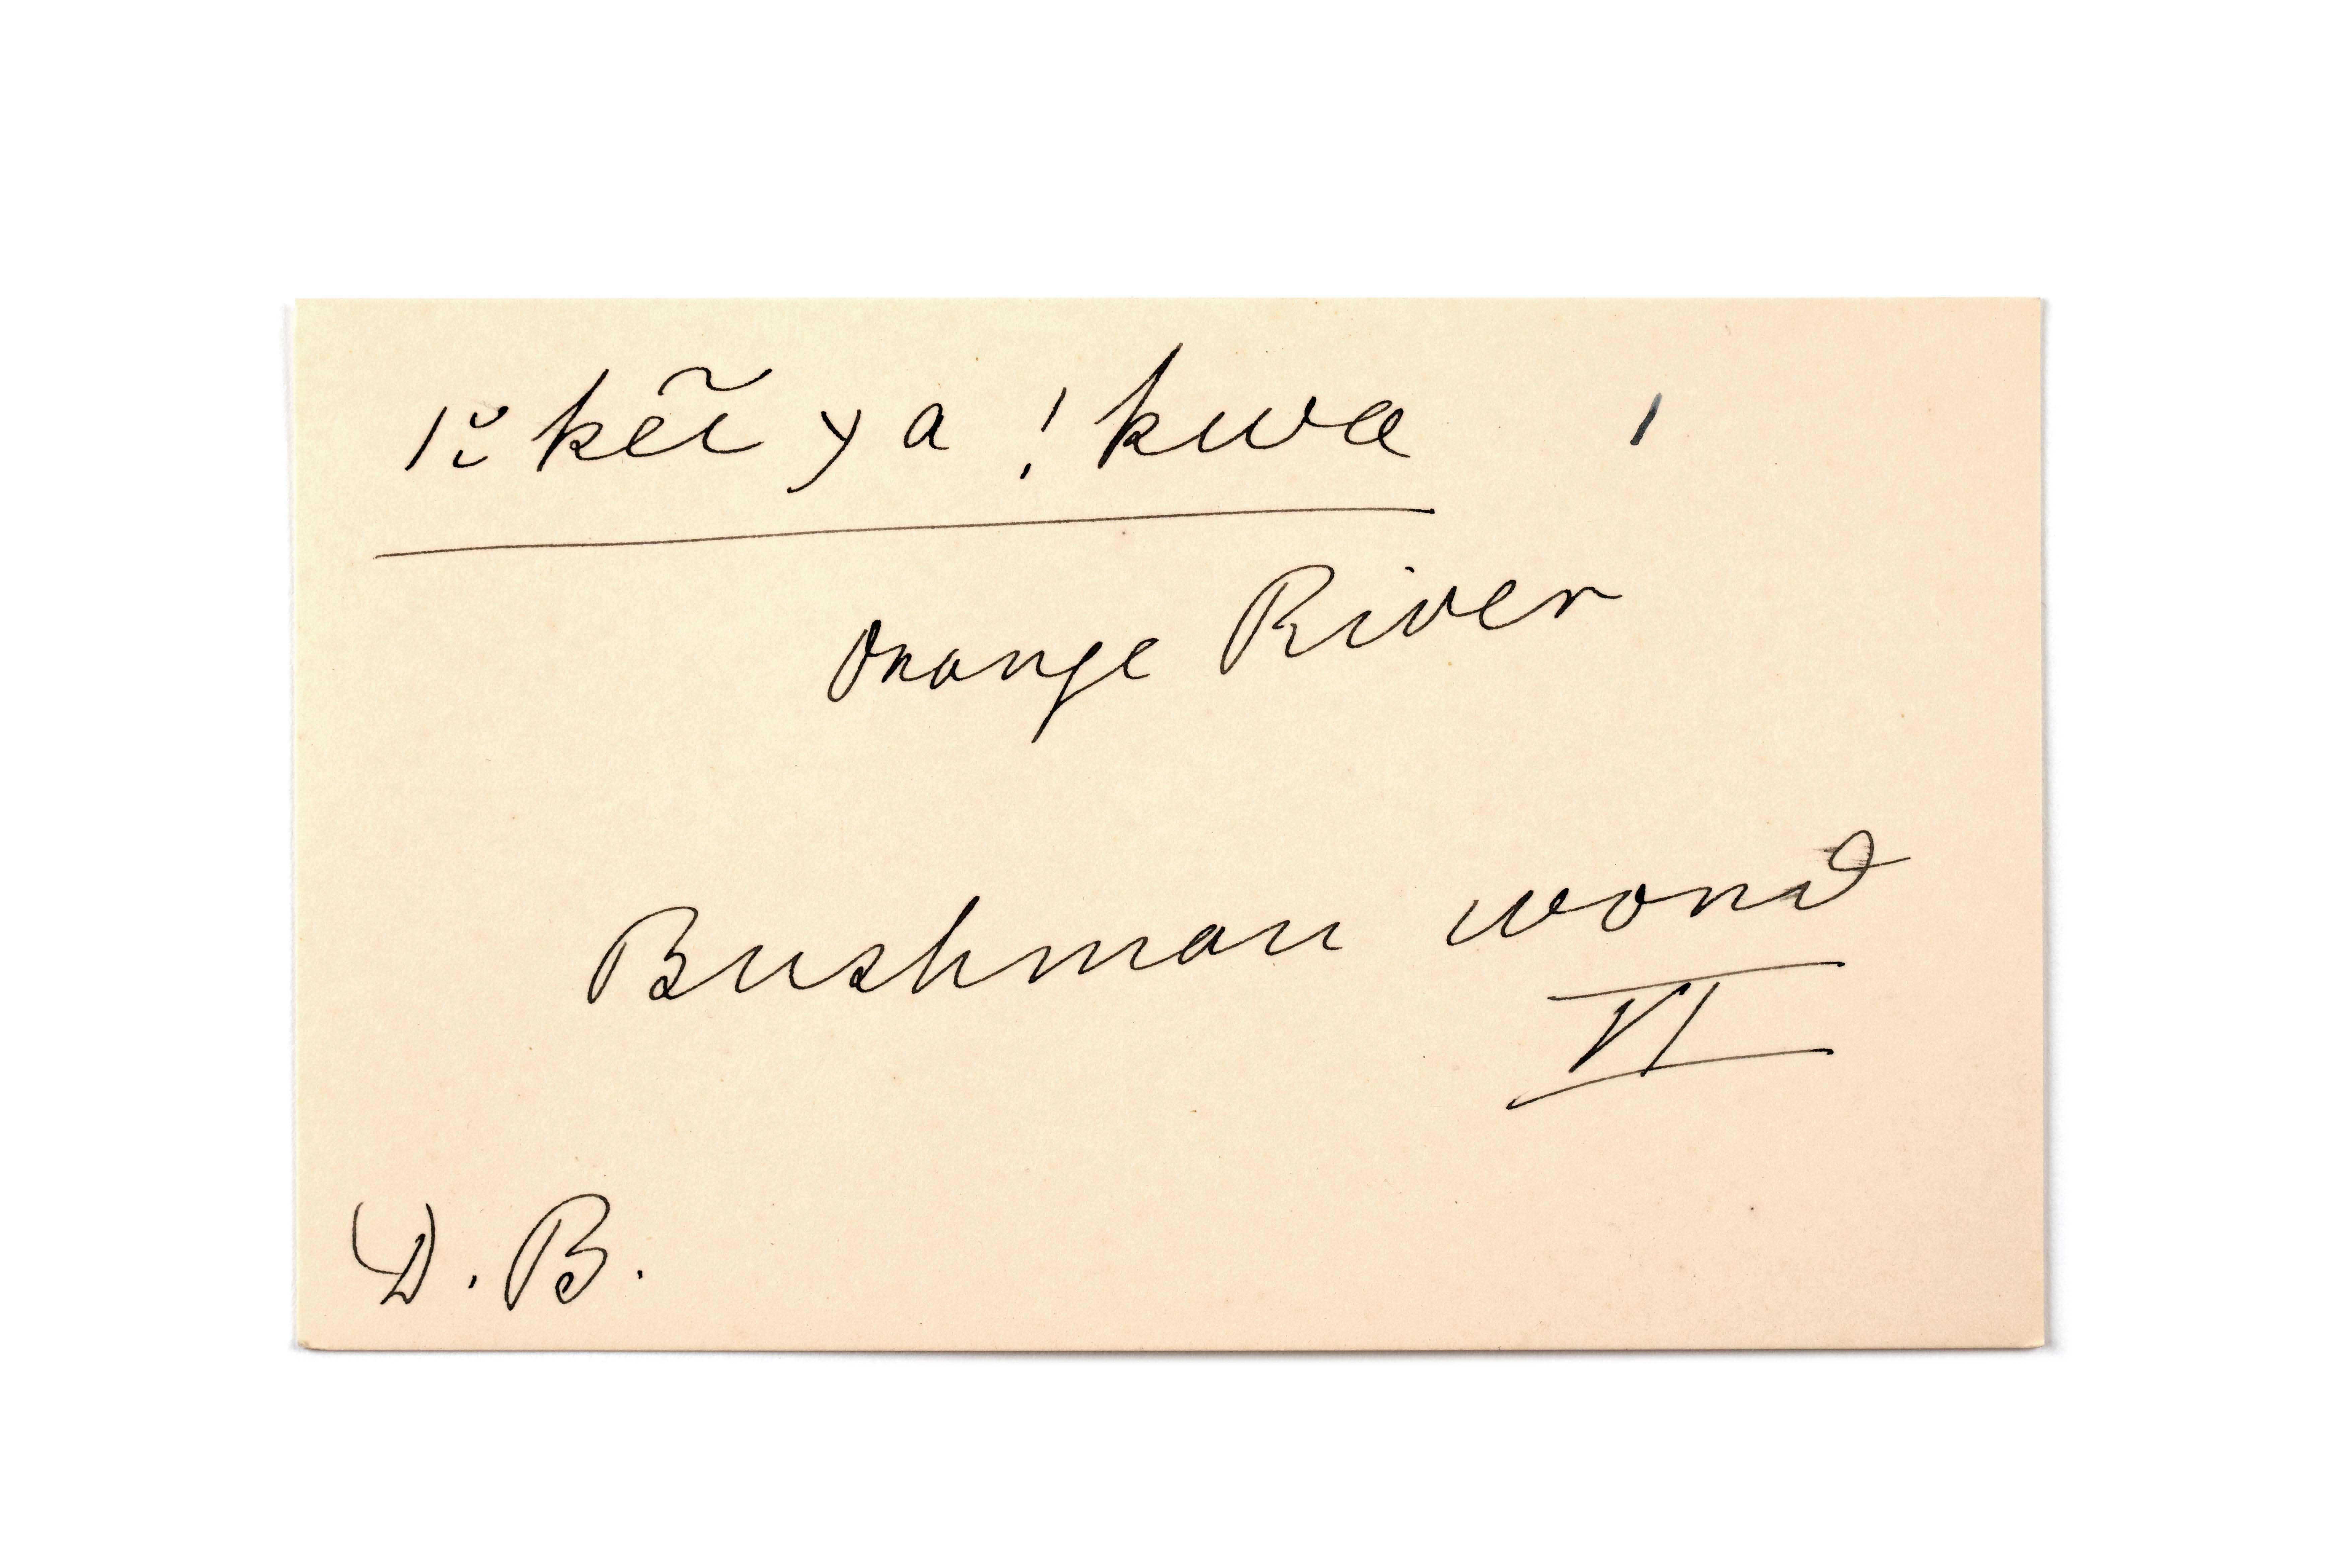 /ĭ kẽĩ χa !kwa /
Orange River
Bushman word
VI
D. B.